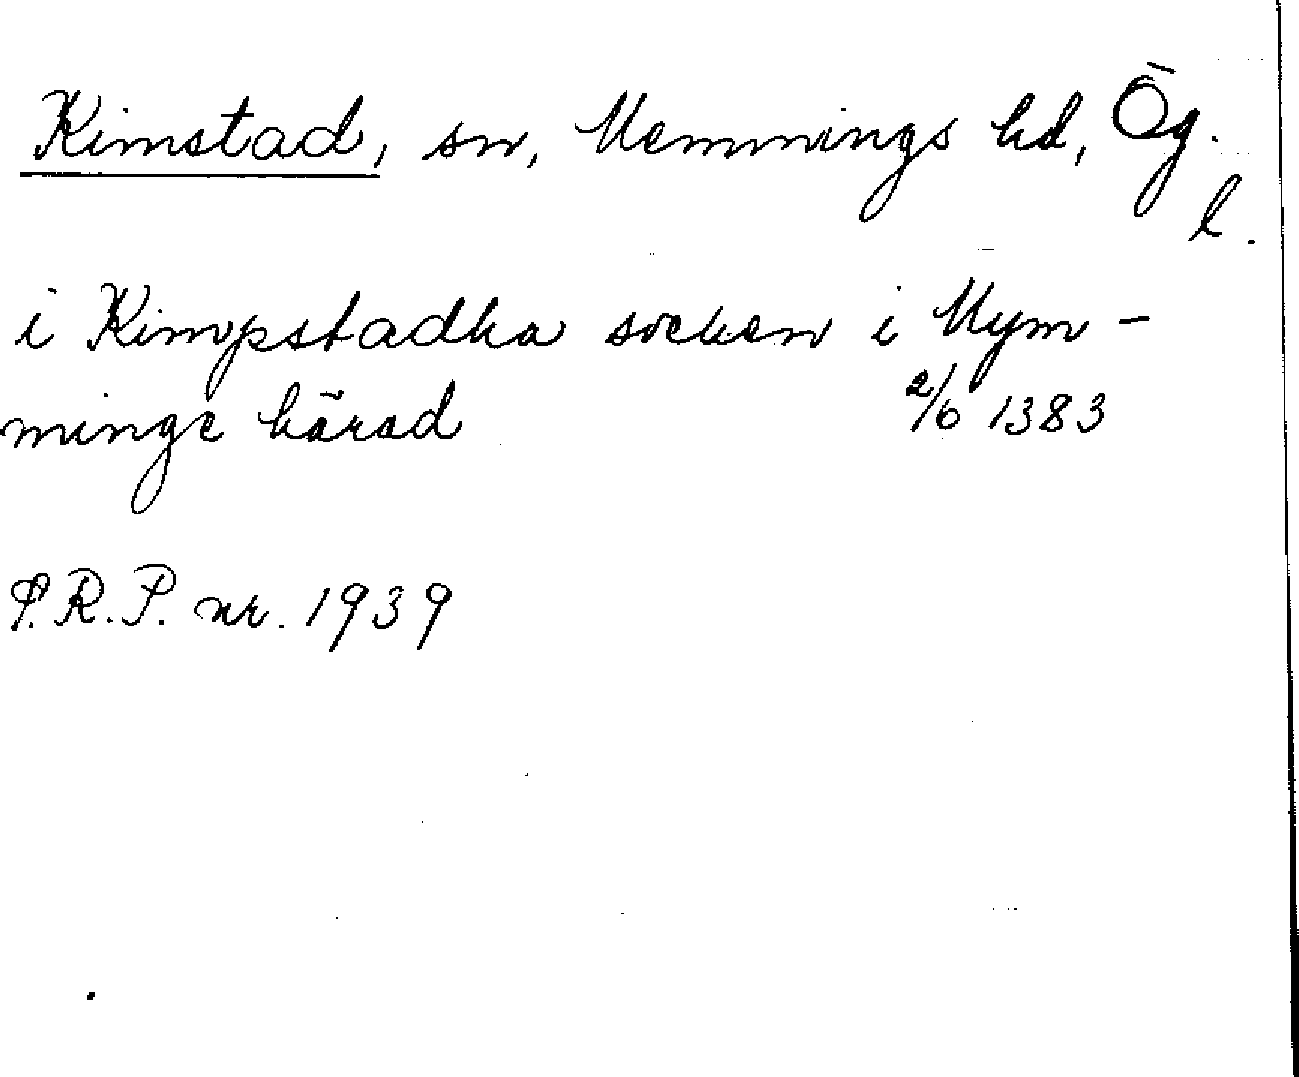 Kimstad, sn, Memmings hd, Ög.
l.
i Kimpstadha socken i Mym-
minge härad 2/6 1383
P.R.P. nr. 1939